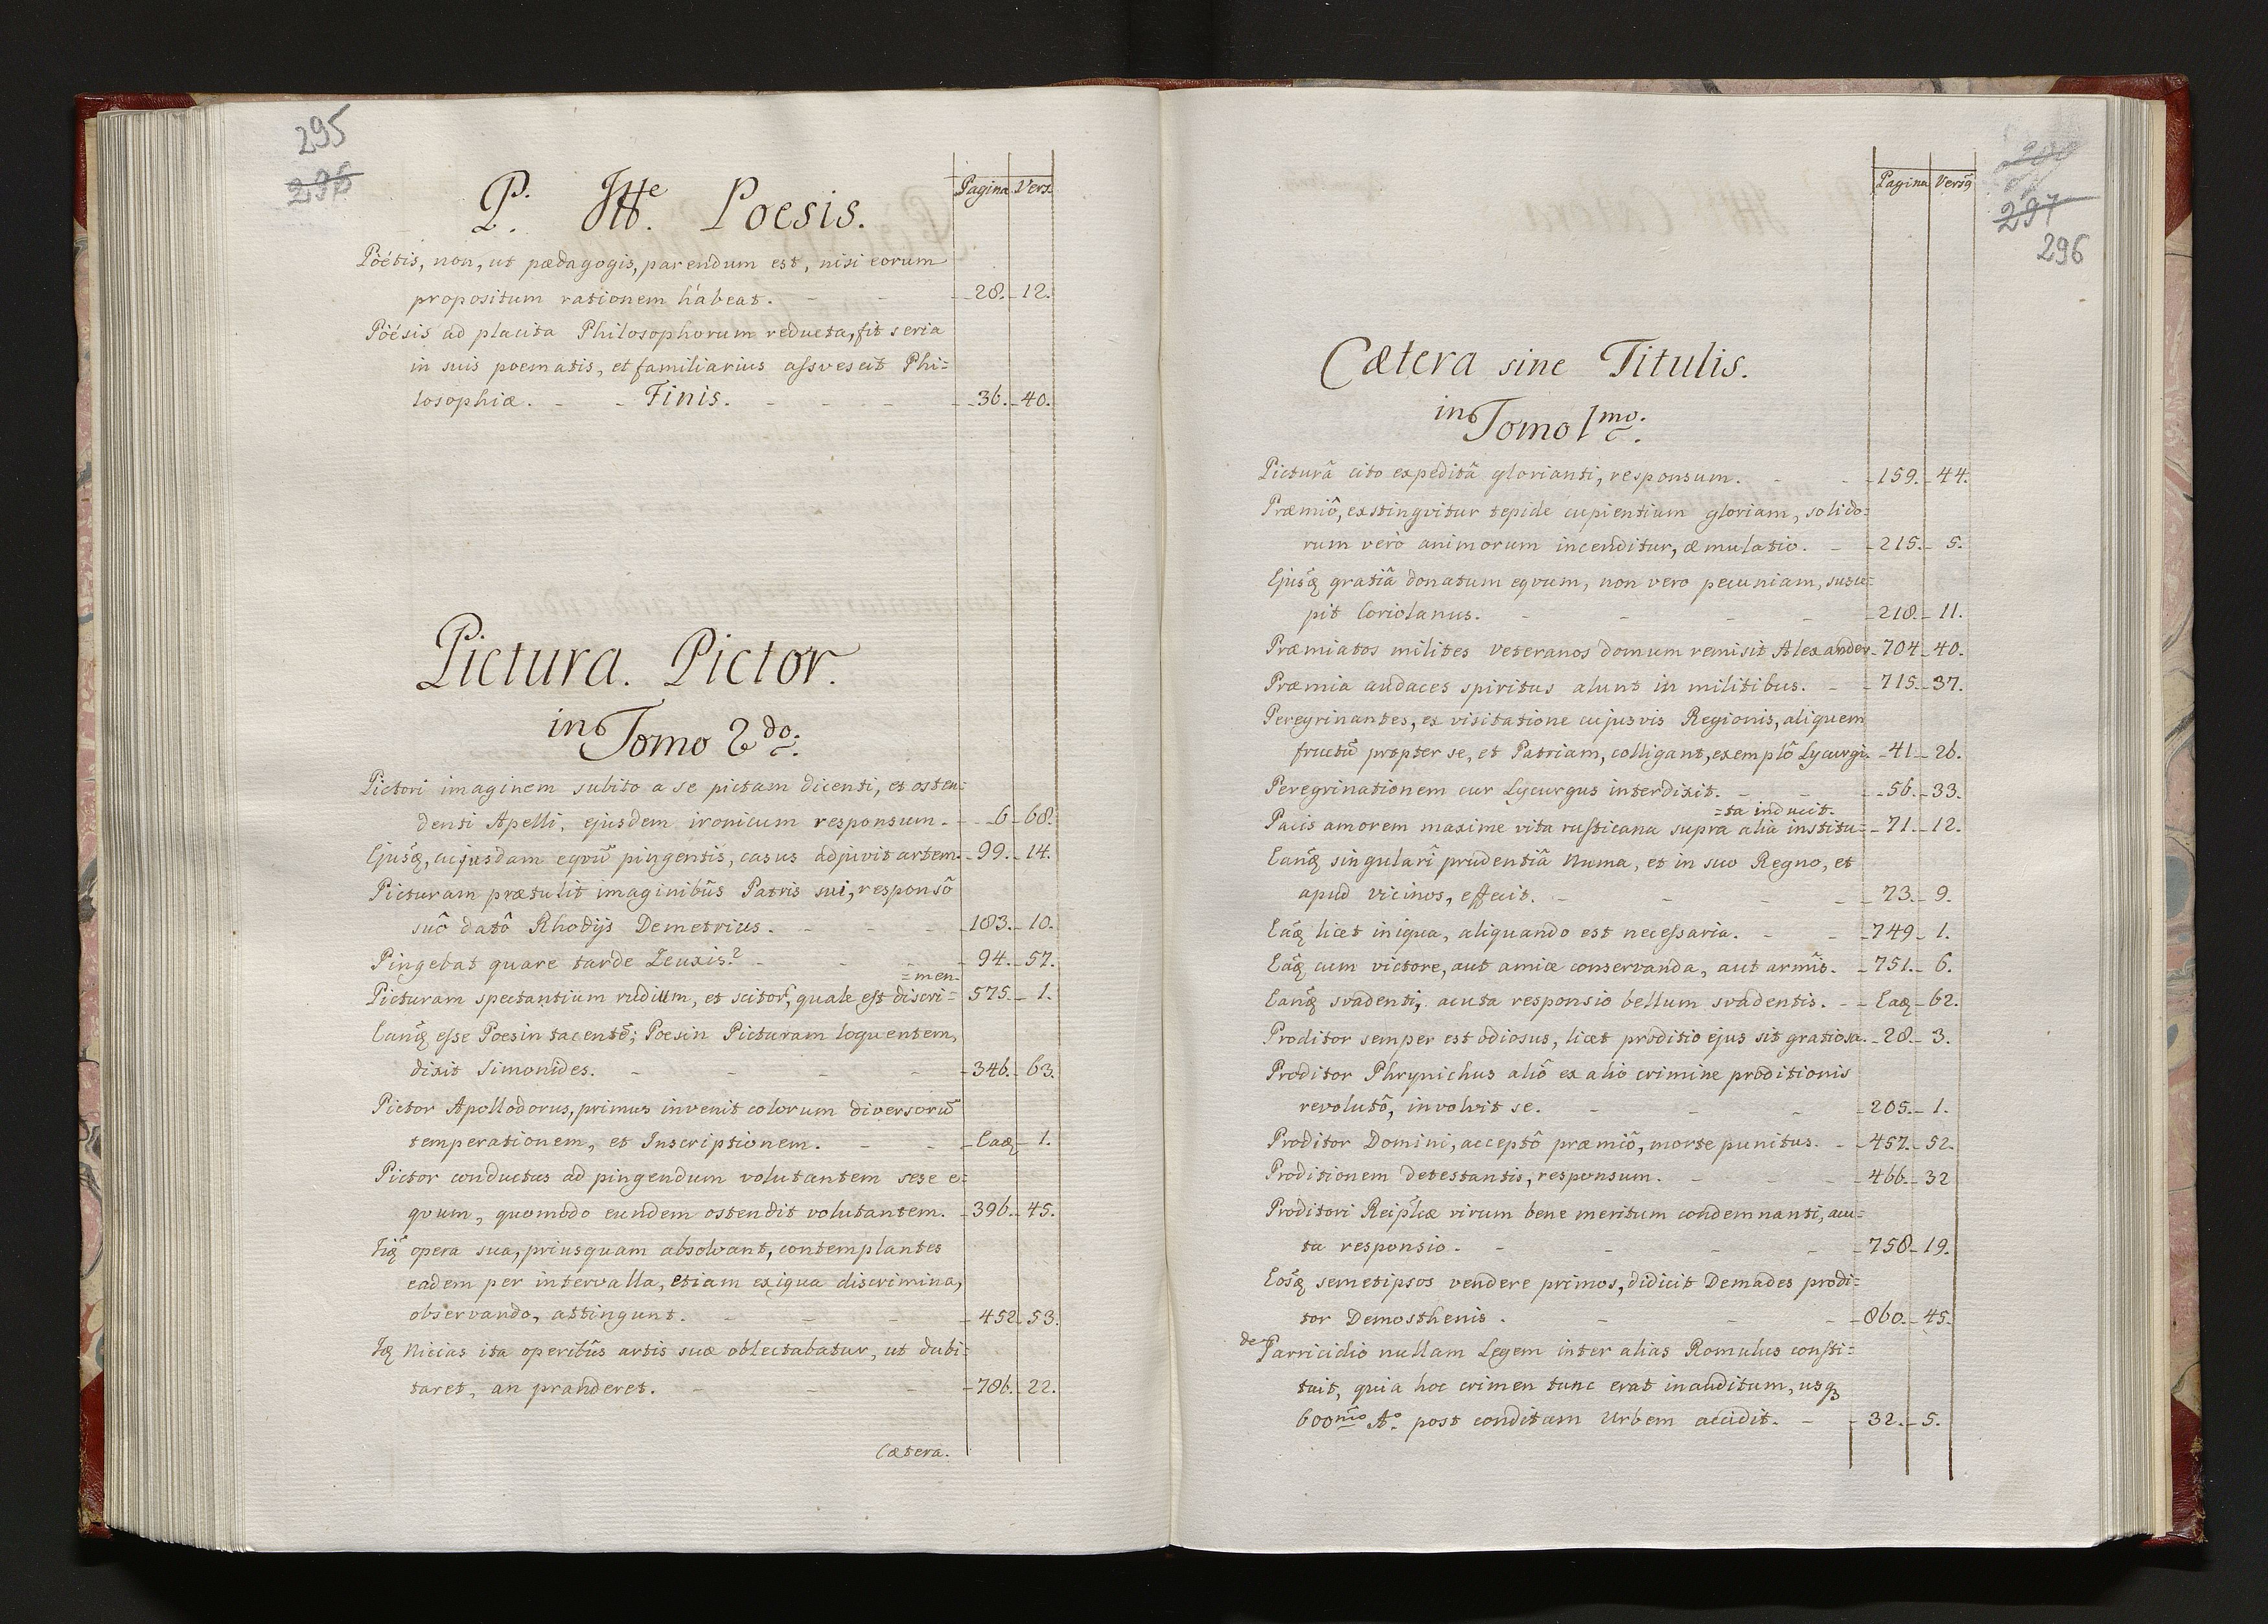 295
296
P. Itte. Poesis.
Pagina Vers.
Pöétis, non, ut pædagogis, parendum est, nisi eorum
propositum rationem hábeat. - - 28. 12.
Pöésis ad placita Philosophorum reducta, fit seria
in suis poematis, et familiarius assvescit Phi=
losophiæ. - - Finis. - - - 36. 40.
Pictura. Pictor.
in Tomo 2do.
Pictori imaginem subito a se pictam dicenti, et osten=
denti Apelli, ejusdem ironicum responsum. 6 68.
Ejusq, cujusdam eqvū pingentis, casus adjuvit artem. 99. 14.
Picturam prætulit imaginibûs Patris sui, responsô
suô datô Rhodijs Demetrius. - - - 183. 10.
Pingebat quare tarde Zeuxis? - - 94. 57.
=men.
Picturam spectantium rudium, et scitor, quale est discri= 575. 1.
Eanq esse Poesin tacentē; Poesin Picturam loquentem,
dixit Simonides. - - - - 346. 63.
Pictor Apollodorus, primus invenit colorum diversorū
temperationem, et Inscriptionem. - - Eaq 1.
Pictor conductus ad pingendum volutantem sese e=
qvum, quomodo eundem ostendit volutantem. 396. 45.
Iiq opera sua, priusquam absolvant, contemplantes
eadem per intervalla, etiam exigua discrimina,
observando, attingunt. - - - 452. 53.
Iq Nicias ita operibûs artis suæ oblectabatur, ut dubi=
taret, an pranderet. - - - 786. 22.
Cætera.
297
296
Pagina Versq
Cætera sine Titulis.
in Tomo 1mo.
Picturâ cito expeditâ glorianti, responsum. - - 159. 44.
Præmiô, exstingvitur tepide cupientium gloriam, solido=
rum verò animorum incenditur, æmulatio. - 215. 5.
Ejusq gratiâ donatum eqvum, non vero pecuniam, susce=
pit Coriolanus. - - - - 218. 11.
Præmiatos milites veteranos domum remisit Alexander 704 40.
Præmia audaces spiritus alunt in militibus. - 715. 37.
Peregrinantes, ex visitatione cujusvis Regionis, aliquem
fructū propter se, et Patriam, colligant, exemplô Lycurgi. 41 26.
Peregrinationem cur Lycurgus interdixit. - - 56. 33.
=ta inducit.
Pacis amorem maxime vita rusticana supra alia institu= 71. 12.
Eanq singulari prudentiâ Numa, et in suo Regno, et
apud vicinos, effecit. - - - 73. 9.
Eaq licet iniqua, aliquando est necessaria. - - 749 1.
Eaq cum victore, aut amice conservanda, aut armîs. 751. 6.
Eanq svadenti, acuta responsio bellum svadentis. - Eaq 62.
Proditor semper est odiosus, licet proditio ejus sit gratiosa. 28. 3.
Proditor Phrynichus aliô ex aliô crimine proditionis
revolutô, involvit se. - - - 205. 1.
Proditor Domini, acceptô præmiô, morte punitus. - 457. 52.
Proditionem detestantis, responsum. - - - 466. 32
Proditori Reiplcæ virum bene meritum condemnanti, acu=
ta responsio. - - - - 758 19.
Eosq semetipsos vendere primos, didicit Demades prodi=
tor Demosthenis. - - - 860. 45.
de Parricidio nullam Legem inter alias Romulus consti=
tuit, quia hoc crimen tunc erat inauditum, usq
600mo Ao. post conditam Urbem accidit. - 32. 5.